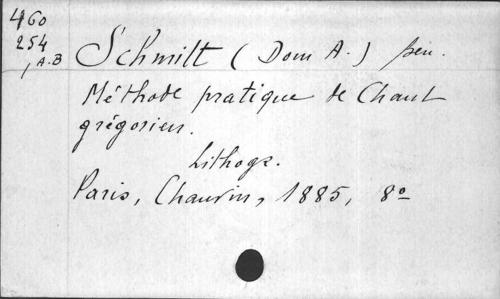 460
254
, A.B
Schmitt ( Dom A. )
Méthode pratique de Chant
grégorien.
Lithogr.
Paris, Chauvin, 1885, 8º